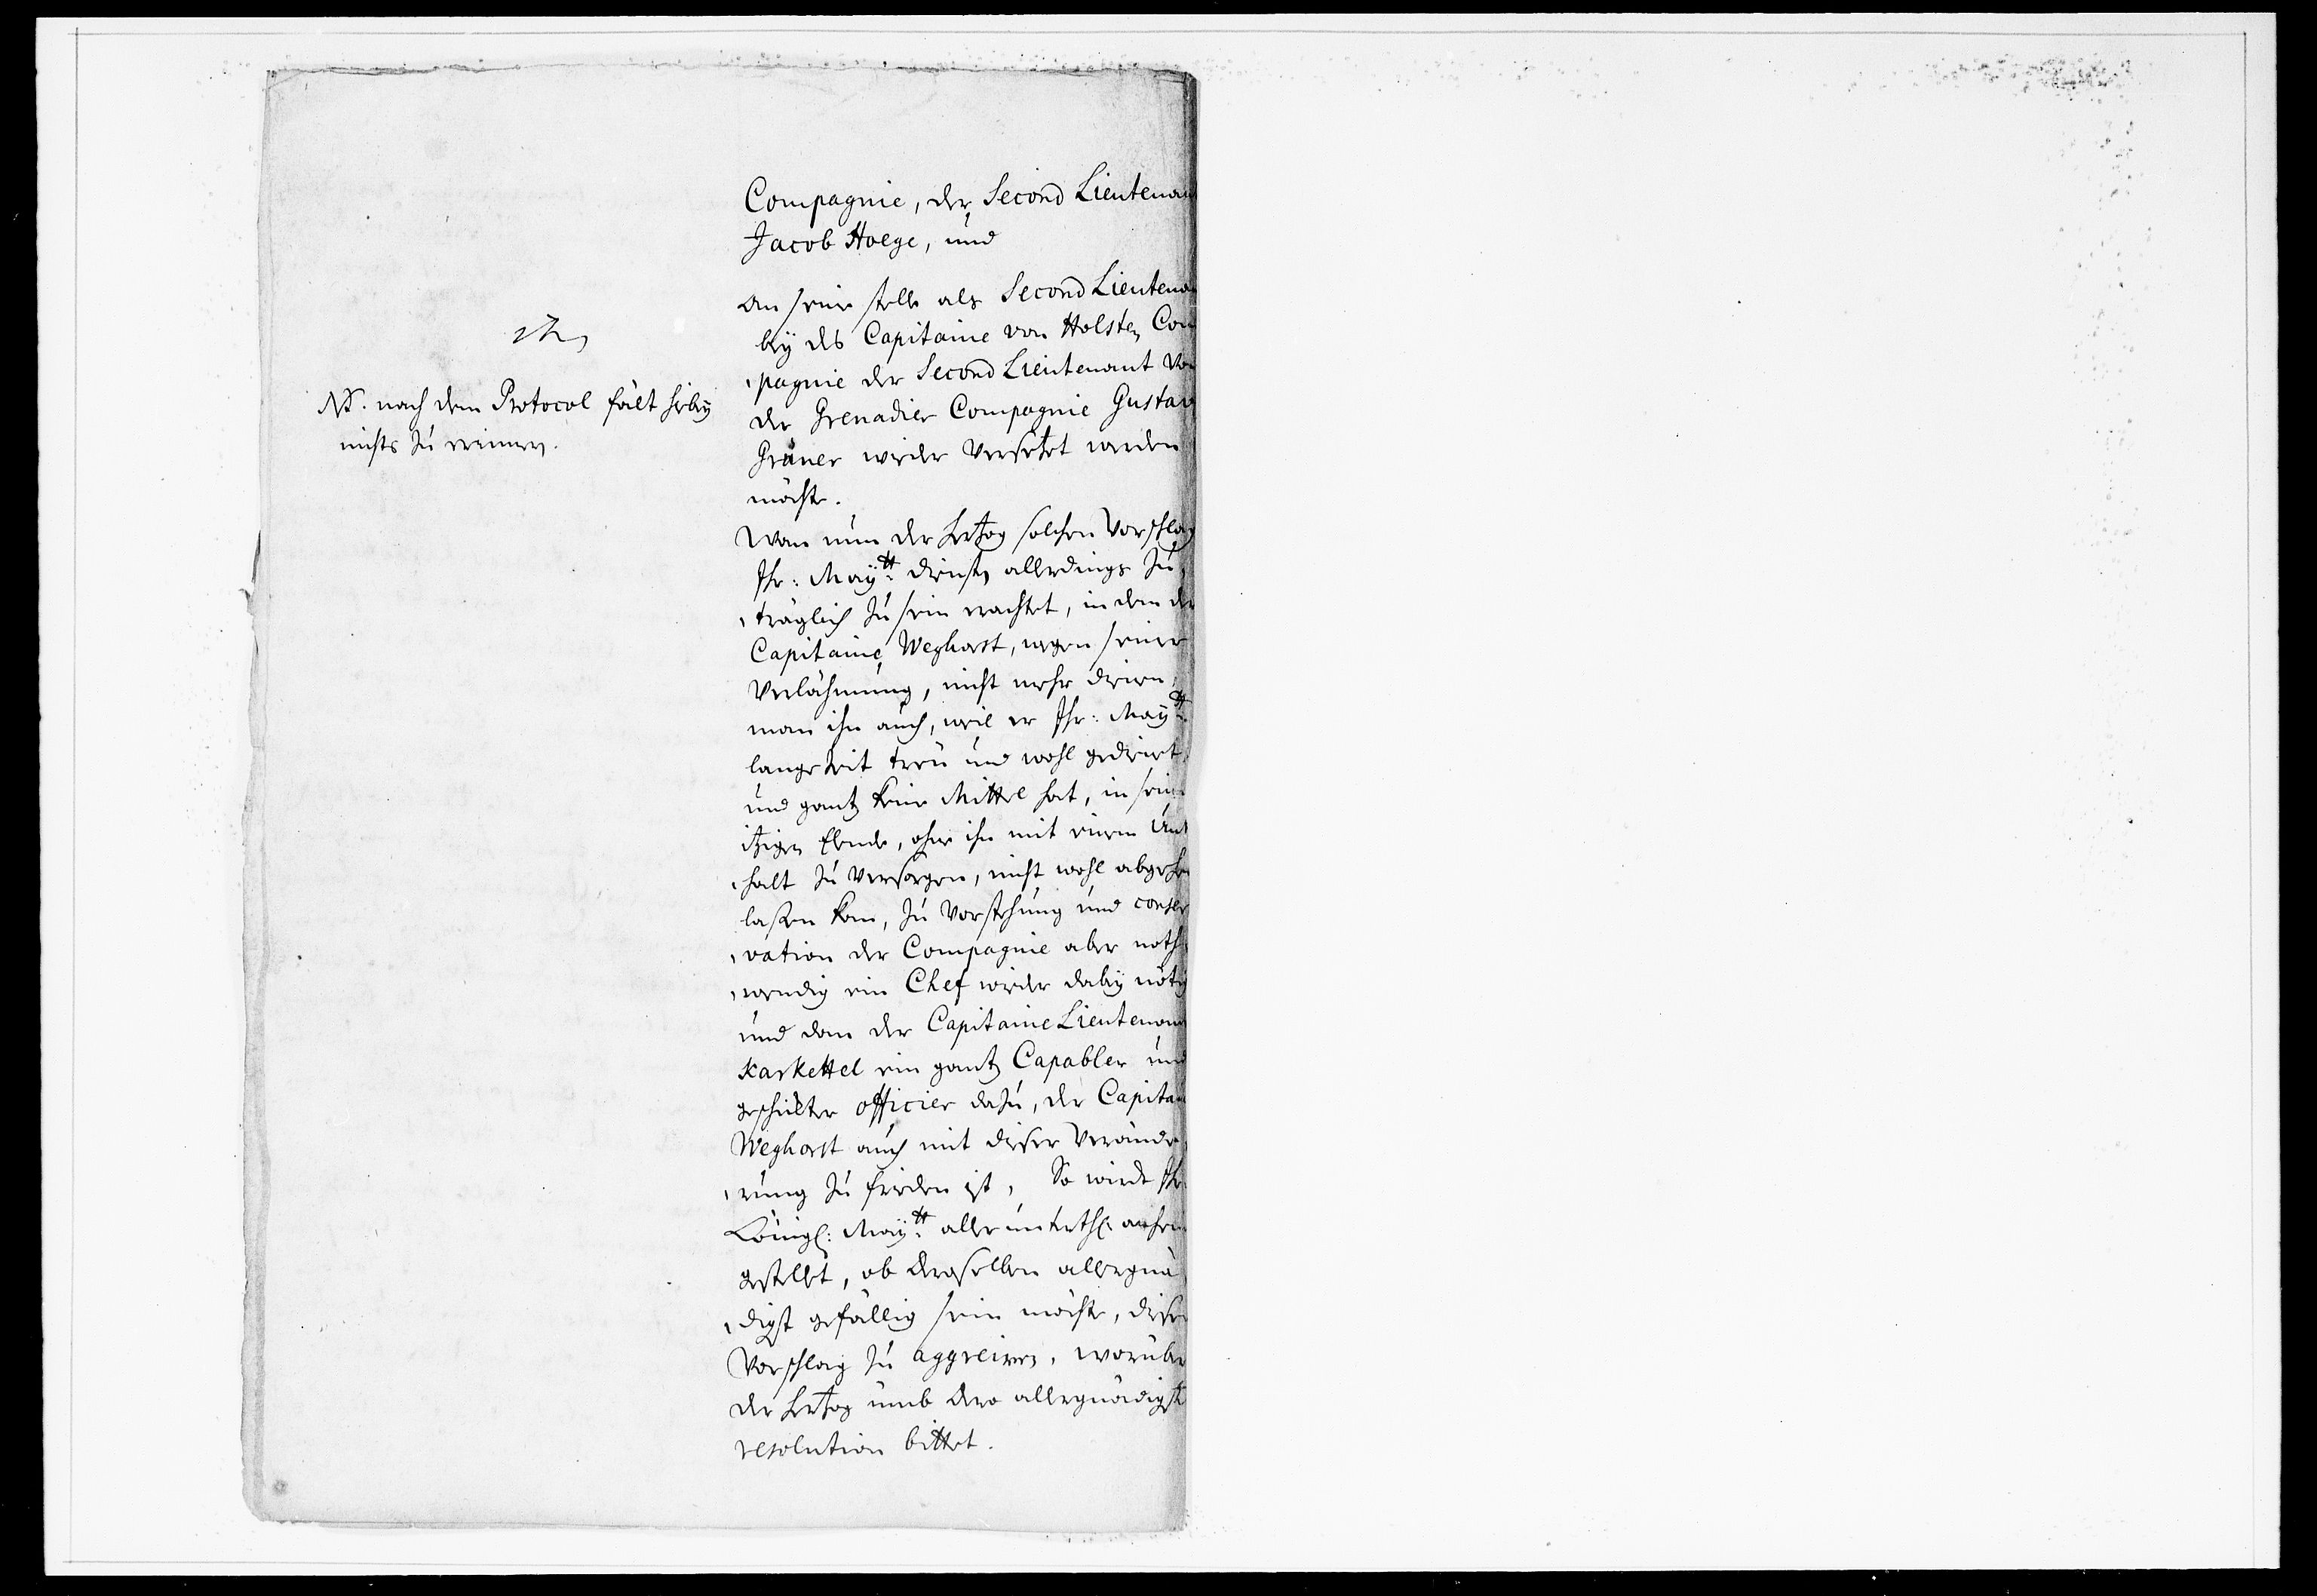 Compagnie, der Second Lieutenan
Jacob Hoege, und
an seine stelle als Second Lieutena
beÿ des Capitaine von Holsten Com
pagnie der Second Lieutenant Von
der Grenadier Compagnie Gustav
Grüner wieder Versetzet werden
möchte.
NB. nach dem Protocol fält hiebeÿ
nichts zu erinnern.
Wan nun der Hertzog solchen Vorschlag
Ihr: Maÿtt: dienste allerdings zu
träglich zu sein erachtet, in dem der
Capitaine Weghorst, wegen seiner
Verlähmung, nicht mehr dienen,
man ihn auch, weil er Ihr: Maÿtt:
lange Zeit treu und wohl gedienet,
und gantz keine Mittel hat, in sein
itzigen Elende, ohne ihn mit einem Unt
halt zu Versorgen, nicht wohl abgehen
laßen kan, zu Vorstehung und conser
vation der Compagnie aber noth
wendig ein Chef wieder dabeÿ nötig
und dan der Capitaine Lieutenant
Karkettel ein gantz Capabler und
geschickter officier dazu, der Capitai
Weghorst auch mit dieser Verände
rung zu frieden ist, So wird Ihr
Königl: Maÿtt: allerunterth: anheim
gestellet, ob deroselben allergnä
digst gefällig sein möchte, diesen
Vorschlag zu aggreiren, worüber
der Hertzog umb dero allergnädigst
resolution bittet.